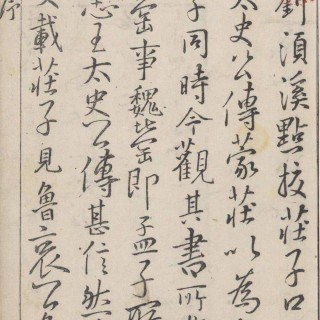 劉須溪點校莊子口
太史公傳蒙莊以為
子同時今觀其書所
罃事魏罃即孟子所
惠王太史公傳甚信然
又載莊子見魯哀公
序